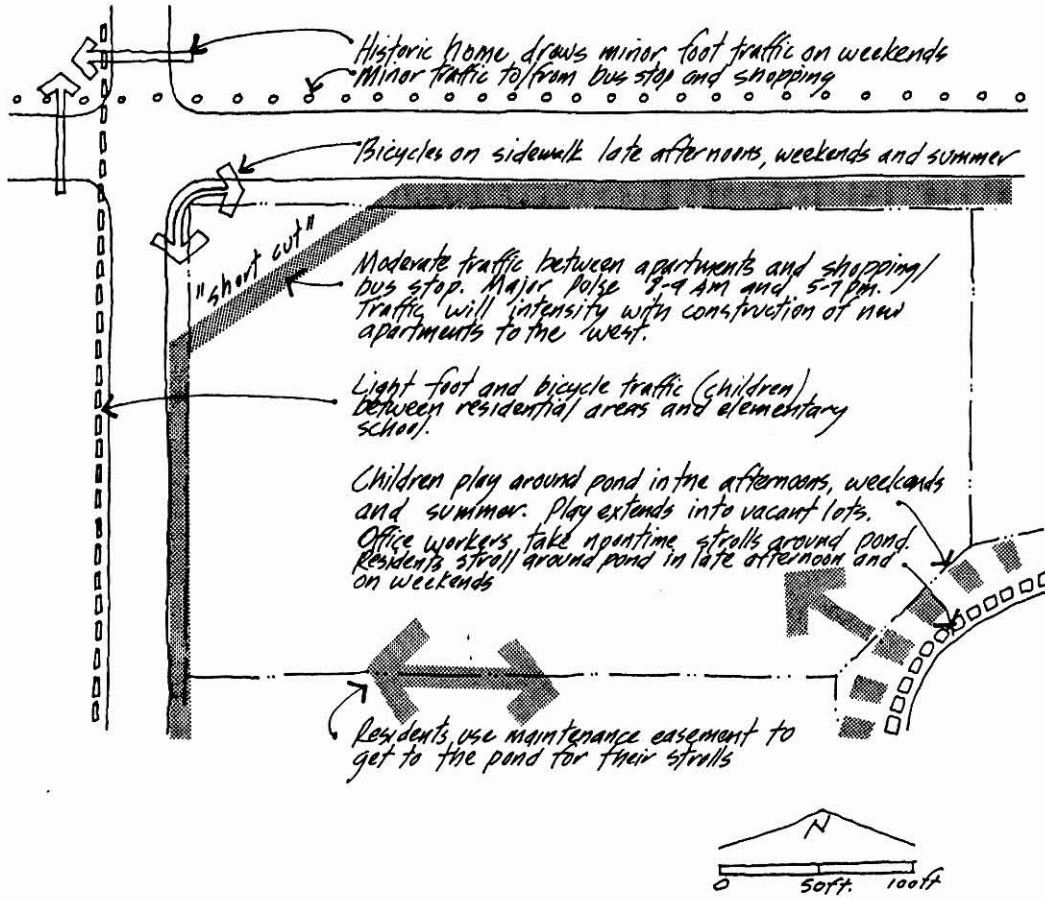 Historic home draws minor foot traffic on weekends
Minor traffic to/from bus stop and shopping
Bicycles on sidewalk late afternoons, weekends and summer
"short cut"
Moderate traffic between apartments and shopping/
bus stop. Major pulse 8-9 AM and 5-7 pm.
Traffic will intensity with construction of new
apartments to the west.
Light foot and bicycle traffic (children)
between residential areas and elementary
school.
Children play around pond in the afternoons, weekends
and summer. Play extends into vacant lots.
Office workers take noontime strolls around pond.
Residents stroll around pond in late afternoon and
on weekends
Residents use maintenance easement to
get to the pond for their strolls
N
0 50ft. 100ft